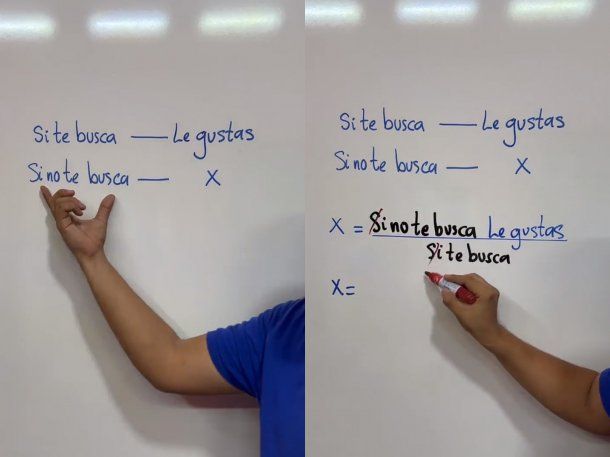 Si te busca — Le gustas
Si no te busca — X
Si te busca — Le gustas
Si no te busca — X
X = Si no te busca Le gustas
Si te busca
X =